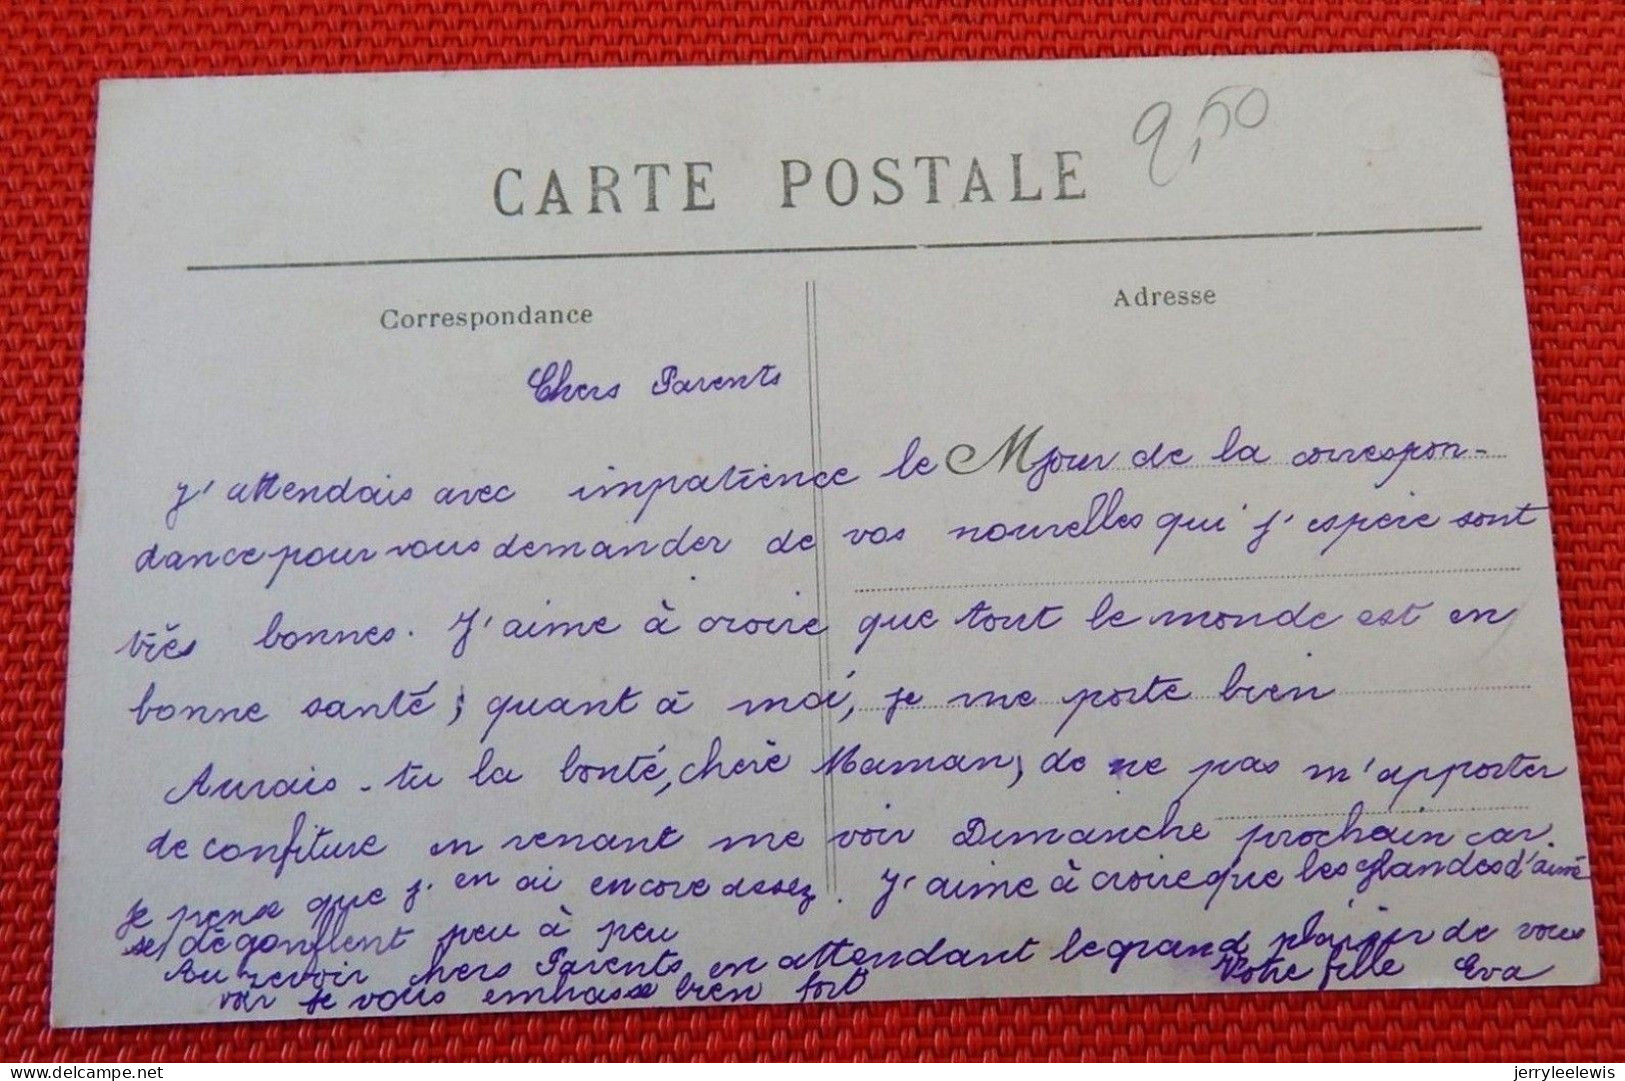 2,50
CARTE POSTALE
Correspondance
Adresse
Chers Parents
J'attendais avec impatience le M jour de la correspon-
dance pour vous demander de vos nouvelles qui j'espère sont
très bonnes. J'aime à croire que tout le monde est en
bonne santé ; quant à moi, je me porte bien
Aurais-tu la bonté, chère Maman, de ne pas m'apporter
de confiture en venant me voir Dimanche prochain car
je pense que j'en ai encore assez. J'aime à croire que les glandes d'aimé
se dégonflent peu à peu
Au revoir chers Parents en attendant le grand plaisir de vous
voir je vous embrasse bien fort Votre fille Eva
delcampe.net
jerryleelewis